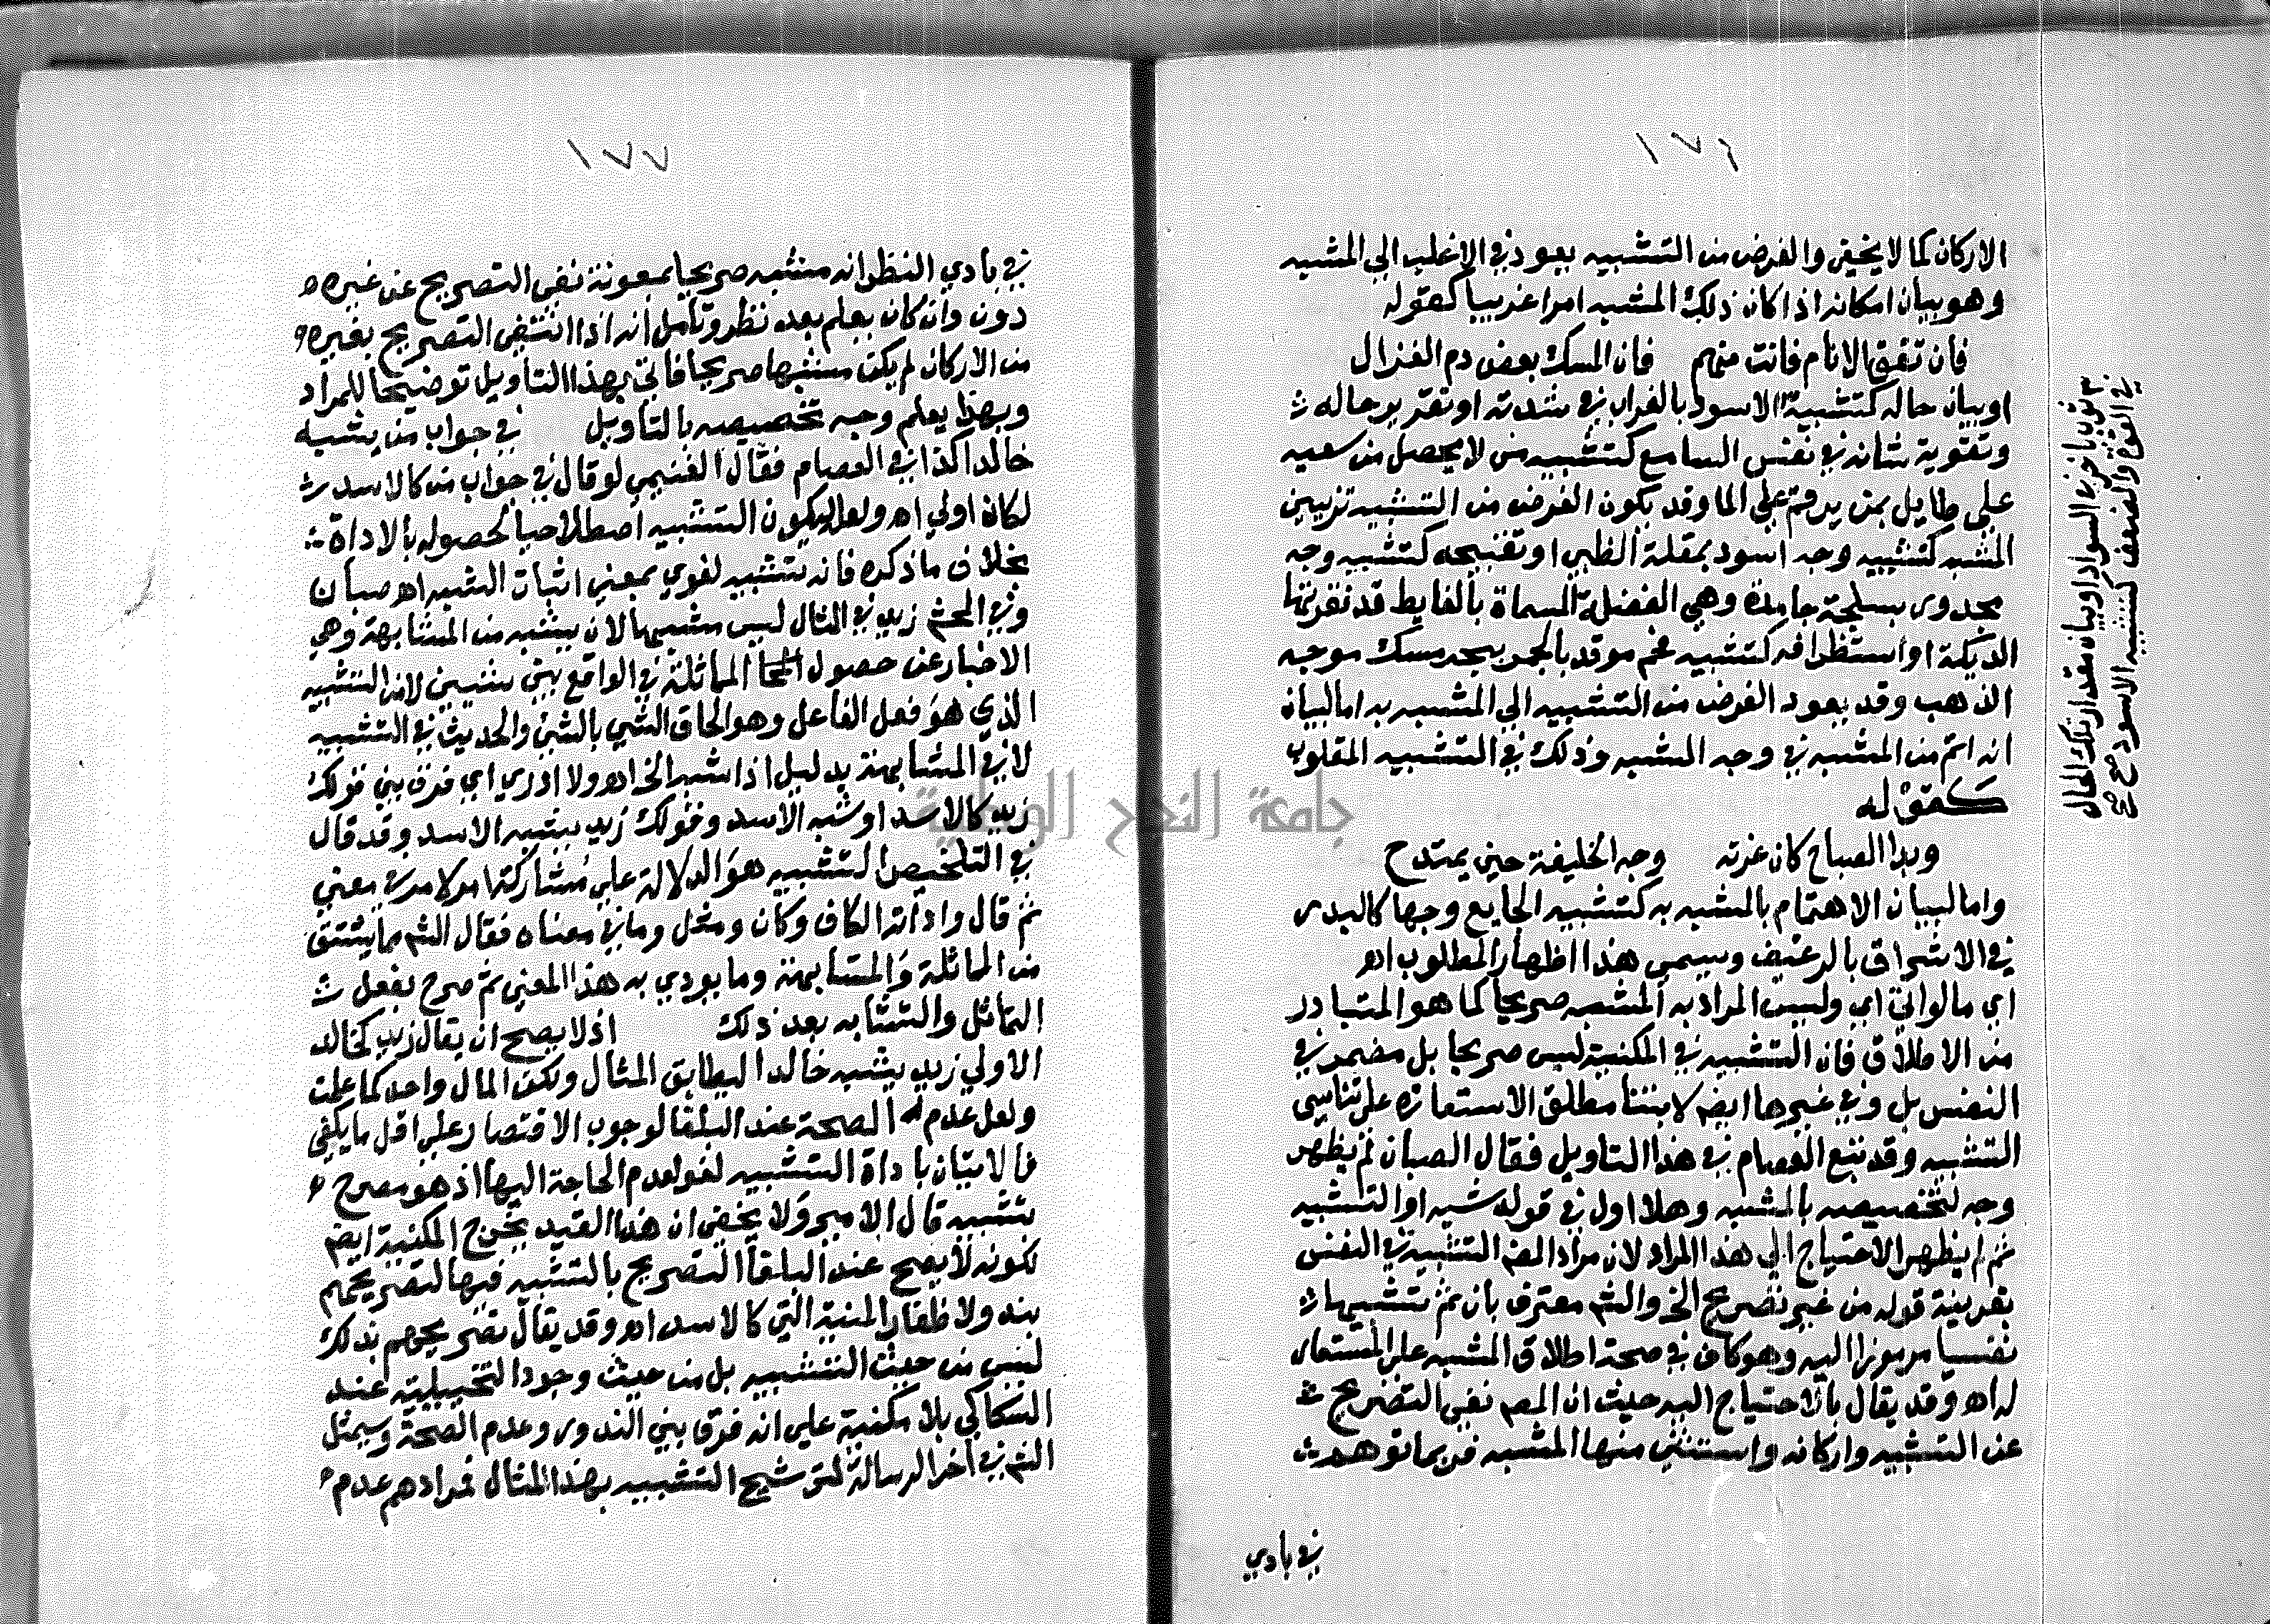 ١٧٦
الاركان كما لا يخفى والغرض من التشبيه يعود في الاغلب الي المشبه
وهو بيان امكانه اذا كان ذلك المشبه امرا غريبا كقوله
فان تفق الانام فانت منهم فان المسك بعض دم الغزال
او بيان حاله كتشبيه الاسود بالغراب في شدته او تقرير حاله
وتقوية شانه في نفس السامع كتشبيه من لا يحصل من سعيه
علي طايل بمن يرقم علي الما وقد يكون الغرض من التشبيه تزيين
المشبه كتشبيه وجه اسود بمقلة الظبي او تقبيحه كتشبيه وجه
مجدور بسلحة جامدة وهي الفضلة المسماة بالغايط قد نقرتها
الديكة او استظرافه كتشبيه فحم موقد بالجمر ببحر مسك موجه
الذهب وقد يعود الغرض من التشبيه الي المشبه به اما لبيان
انه اتم من المشبه في وجه الشبه وذلك في التشبيه المقلوب
كقوله
وبدا الصباح كان غرته وجه الخليفة حين يمتدح
واما لبيان الاهتمام بالمشبه به كتشبيه الجايع وجها كالبدر
في الاشراق بالرغيف ويسمى هذا اظهار المطلوب اه
اي مالواتي اي وليس المراد به المشبه صريحا كما هو المتبادر
من الاطلاق فان التشبيه في المكنية ليس صريحا بل مضمر في
النفس بل وفي غيرها ايضم لابتنا مطلق الاستعارة على تناسي
التشبيه وقد تبع العصام في هذا التاويل فقال الصبان لم يظهر
وجه لتخصيصه بالمشبه وهلا اول في قوله شبه او التشبيه
ثم لم يظهر الاحتياج الي هذا المراد لان مراد المصم التشبيه في النفس
بقرينة قوله من غير تصريح الخ والشم معترف بان ثم تشبيها
نفسيا مرموزا اليه وهو كاف في صحة اطلاق المشبه على المستعار
له اه وقد يقال بالاحتياج اليه حيث ان المصم نفي التصريح
عن التشبيه واركانه واستثنى منها المشبه فربما توهم
في بادي
٣ ثوب باخر في السواد او بيان مقدار تلك الحال
في القوة والضعف كتشبيه الاسود صح صح
١٧٧
في بادي النظر انه مشبه صريحا بمعونة نفي التصريح عن غيره
دون وان كان يعلم بعد نظر وتامل انه اذا انتفى التصريح بغيره
من الاركان لم يكن مشبها صريحا فاتي بهذا التاويل توضيحا للمراد
وبهذا يعلم وجه تخصيصه بالتاويل في جواب من يشبه
خالدا كذا في العصام فقال الغنيمي لو قال في جواب من كالاسد
لكان اولي اه ولعل ليكون التشبيه اصطلاحيا لحصوله بالاداة
بخلاف ما ذكره فانه تشبيه لغوي بمعنى اثبات الشبه اه صبان
وفي المحثم زيد في المثال ليس مشبها لان يشبه من المشابهة وهي
الاخبار عن حصول المماثلة في الواقع بين شيئين لا من التشبيه
الذي هو فعل الفاعل وهو الحاق الشي بالشي والحديث في التشبيه
لا في المشابهة بدليل اذا شبه الخ اه ولا ادري اي فرق بين قولك
زيد كالاسد او شبه الاسد وقولك زيد يشبه الاسد وقد قال
في التلخيص التشبيه هو الدلالة علي مشاركة امر لامر في معني
ثم قال واداته الكاف وكان ومثل وما في معناه فقال الشم مما يشتق
من المماثلة والمشابهة وما يودي به هذا المعني ثم صرح بفعل
التماثل والتشابه بعد ذلك اذ لا يصح ان يقال زيد كخالد
الاولي زيد يشبه خالدا ليطابق المثال ولكن المال واحد كما علمت
ولعل عدم الصحة عند البلغا لوجوب الاقتصار علي اقل ما يكفي
فالاتيان باداة التشبيه لغو لعدم الحاجة اليها اذ هو مصرح
بتشبيه قال الامير ولا يخفى ان هذا القيد يخرج المكنية ايضم
لكونه لا يصح عند البلغا التصريح بالتشبيه فيها لتصريحهم
بند ولا ظفار المنية التي كالاسد اه وقد يقال تصريحهم بذلك
ليس من حيث التشبيه بل من حيث وجود التخييلية عند
السكاكي بلا مكنية علي انه فرق بين الندور وعدم الصحة وسيمثل
الشم في آخر الرسالة لترشيح التشبيه بهذا المثال فمرادهم عدم